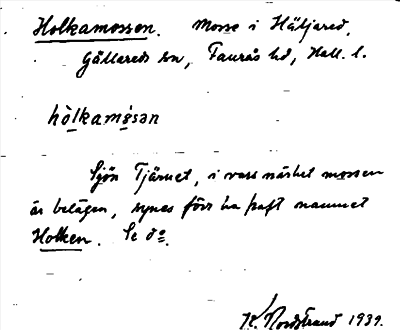 Holkamossen. Mosse i Häljared,
Gällareds sn, Faurås hd, Hall. l.
hòlkamåsən
Sjön Tjärnet, i vars närhet mossen
är belägen, synes förr ha haft namnet
Holken. Se d:o.
K. Nordstrand 1939.